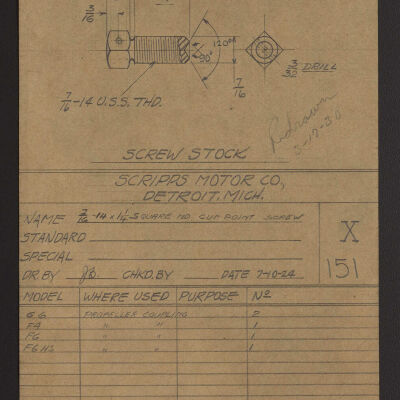 3/16
120°
90°
7/16
3/32 DRILL
7/16-14 U.S.S. THD.
Redrawn
3-17-30
SCREW STOCK
SCRIPPS MOTOR CO,
DETROIT, MICH.
NAME 7/16-14 x 1 1/2 SQUARE HD. CUP POINT SCREW
STANDARD
SPECIAL
X
151
DR. BY CHKD. BY DATE 7-10-24
MODEL WHERE USED PURPOSE No
G 6 PROPELLER COUPLING 2
F4 " " 1
F6 " " 1
F6HS " " 1